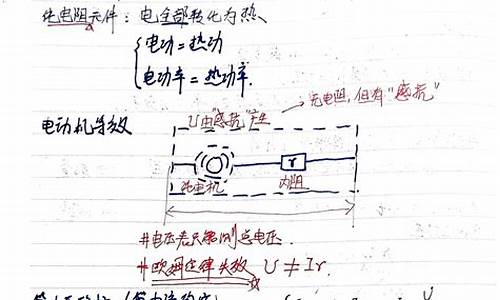 纯电阻元件：电全部转化为热、
电功=热功
电功率=热功率.
无电阻,但有"感抗"
电动机等效
U由"感抗"产生
r
纯电机 内阻
#电压表只能测总电压.
#欧姆定律失效 U≠Ir.